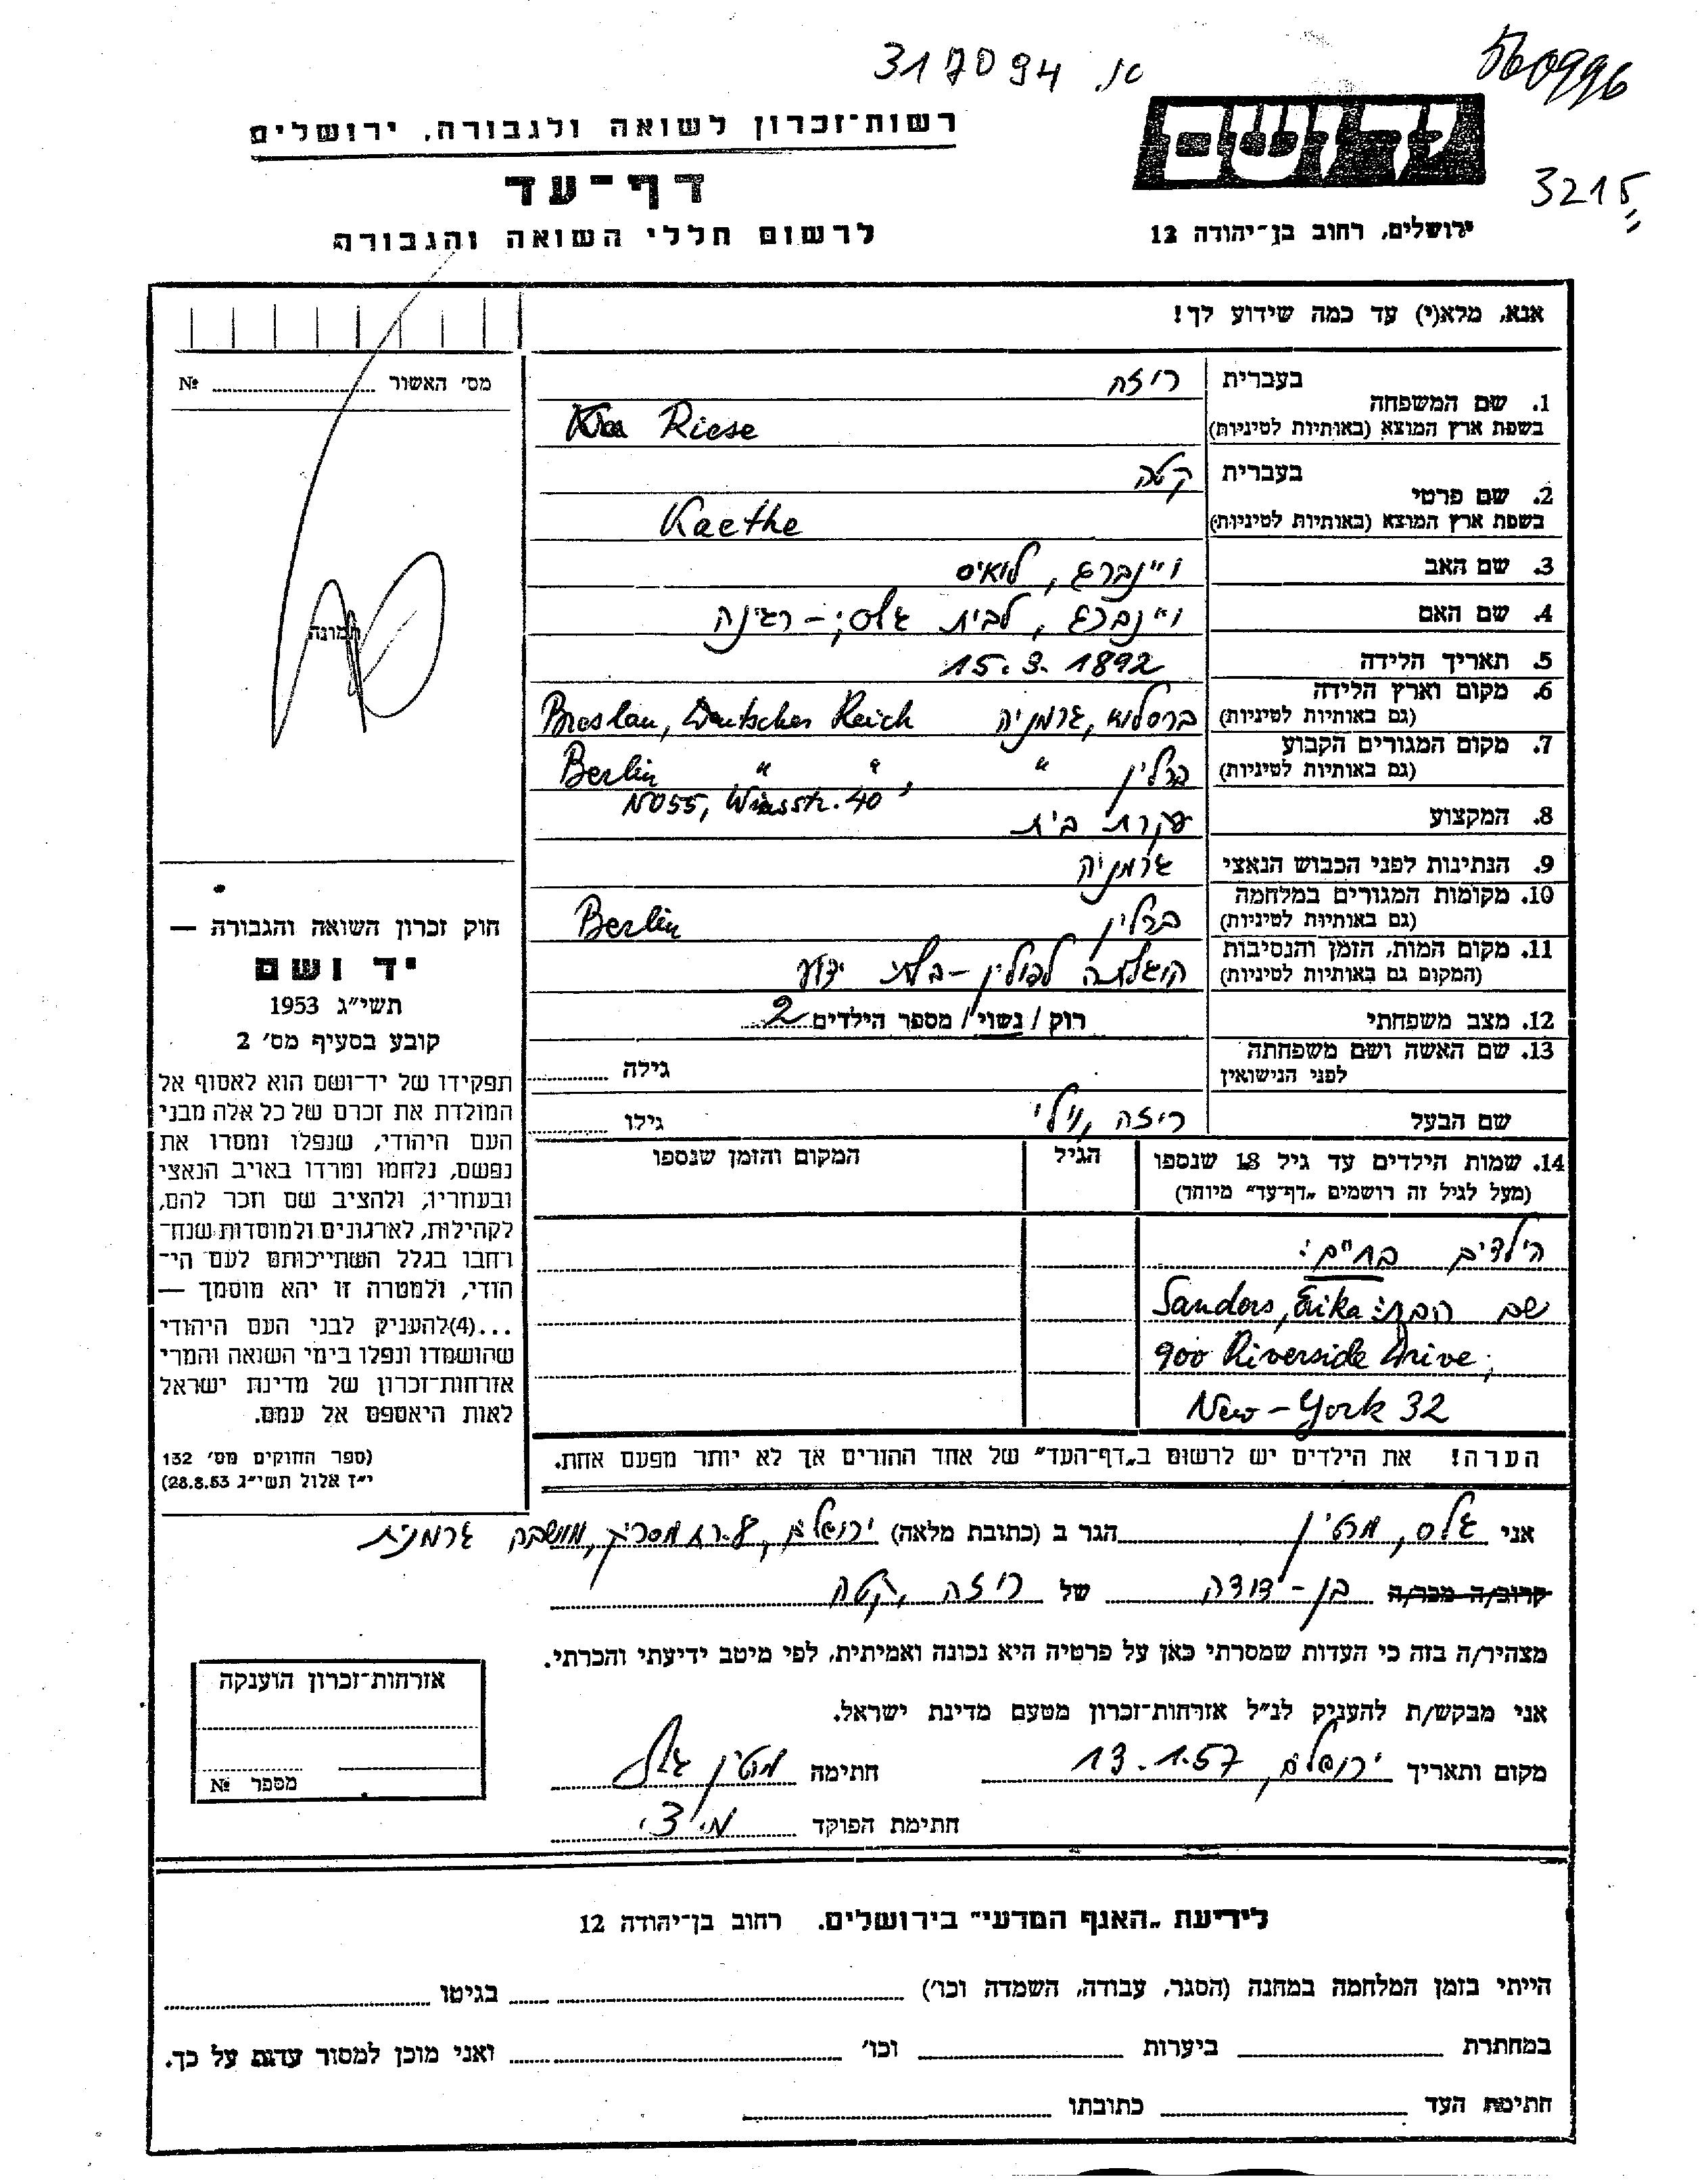 317094 .או
560996
רשות־זכרון לשואה ולגבורה, ירושלים
יד ושם
דף־עד
3215
לרשום חללי השואה והגבורה
ירושלים, רחוב בן־יהודה 12
אנא, מלא(י) עד כמה שידוע לך!
מס׳ האשור № 
1. שם המשפחה בעברית ריזה
בשפת ארץ המוצא (באותיות לטיניות) Riese
2. שם פרטי בעברית קטה
בשפת ארץ המוצא (באותיות לטיניות) Kaethe
3. שם האב ויינברג, לואיס
4. שם האם ויינברג, לבית גלס; – רגינה
תמונה
5. תאריך הלידה 15.3.1892
6. מקום וארץ הלידה (גם באותיות לטיניות) ברסלוי, גרמניה Breslau, Deutsches Reich
7. מקום המגורים הקבוע (גם באותיות לטיניות) ברלין " Berlin " "
NO55, Winsstr. 40
8. המקצוע עקרת בית
9. הנתינות לפני הכבוש הנאצי גרמניה
10. מקומות המגורים במלחמה (גם באותיות לטיניות) ברלין Berlin
11. מקום המות, הזמן והנסיבות (המקום גם באותיות לטיניות) הוגלתה לפולין – בלתי ידוע
12. מצב משפחתי רוק / נשוי / מספר הילדים 2
13. שם האשה ושם משפחתה לפני הנישואין גילה
שם הבעל ריזה, וילי גילו
14. שמות הילדים עד גיל 18 שנספו הגיל המקום והזמן שנספו
(מעל לגיל זה רושמים „דף־עד״ מיוחד)
הילדים בחיים:
שם הבת: Sanders, Erika
900 Riverside Drive,
New-York 32
הערה! את הילדים יש לרשום ב„דף־העד״ של אחד ההורים אך לא יותר מפעם אחת.
חוק זכרון השואה והגבורה —
יד ושם
תשי״ג 1953
קובע בסעיף מס׳ 2
תפקידו של יד־ושם הוא לאסוף אל
המולדת את זכרם של כל אלה מבני
העם היהודי, שנפלו ומסרו את
נפשם, נלחמו ומרדו באויב הנאצי
ובעוזריו, ולהציב שם וזכר להם,
לקהילות, לארגונים ולמוסדות שנח־
רחבו בגלל השתייכותם לעם הי־
הודי, ולמטרה זו יהא מוסמך —
...(4) להעניק לבני העם היהודי
שהושמדו ונפלו בימי השואה והמרי
אזרחות־זכרון של מדינת ישראל
לאות היאספם אל עמם.
(ספר החוקים מס׳ 132
י״ז אלול תשי״ג 28.8.53)
אני גלס, מרטין הגר ב (כתובת מלאה) ירושלים, מסריק, מושבה גרמנית
קרוב/ה מכר/ה בן-דודה של ריזה, קטה
מצהיר/ה בזה כי העדות שמסרתי כאן על פרטיה היא נכונה ואמיתית, לפי מיטב ידיעתי והכרתי.
אני מבקש/ת להעניק לנ״ל אזרחות־זכרון מטעם מדינת ישראל.
מקום ותאריך ירושלים, 13.1.57 חתימה מרטין גלס
חתימת הפוקד
אזרחות־זכרון הוענקה
מספר №
לידיעת „האגף המדעי״ בירושלים. רחוב בן־יהודה 12
הייתי בזמן המלחמה במחנה (הסגר, עבודה, השמדה וכו׳) בגיטו
במחתרת ביערות וכו׳ ואני מוכן למסור עדות על כך.
חתימת העד כתובתו